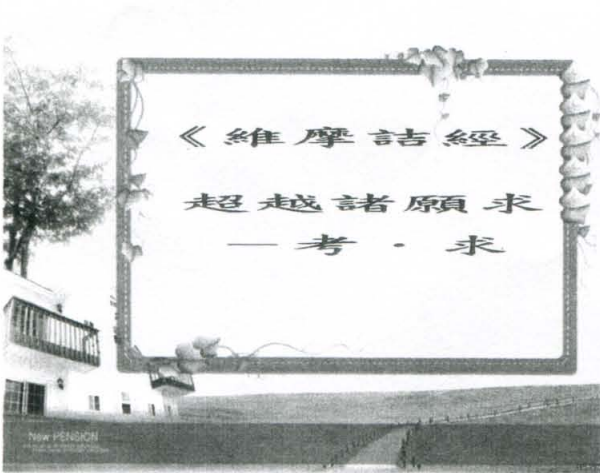 《維摩詰經》
超越諸願求
─考．求
New PENSION